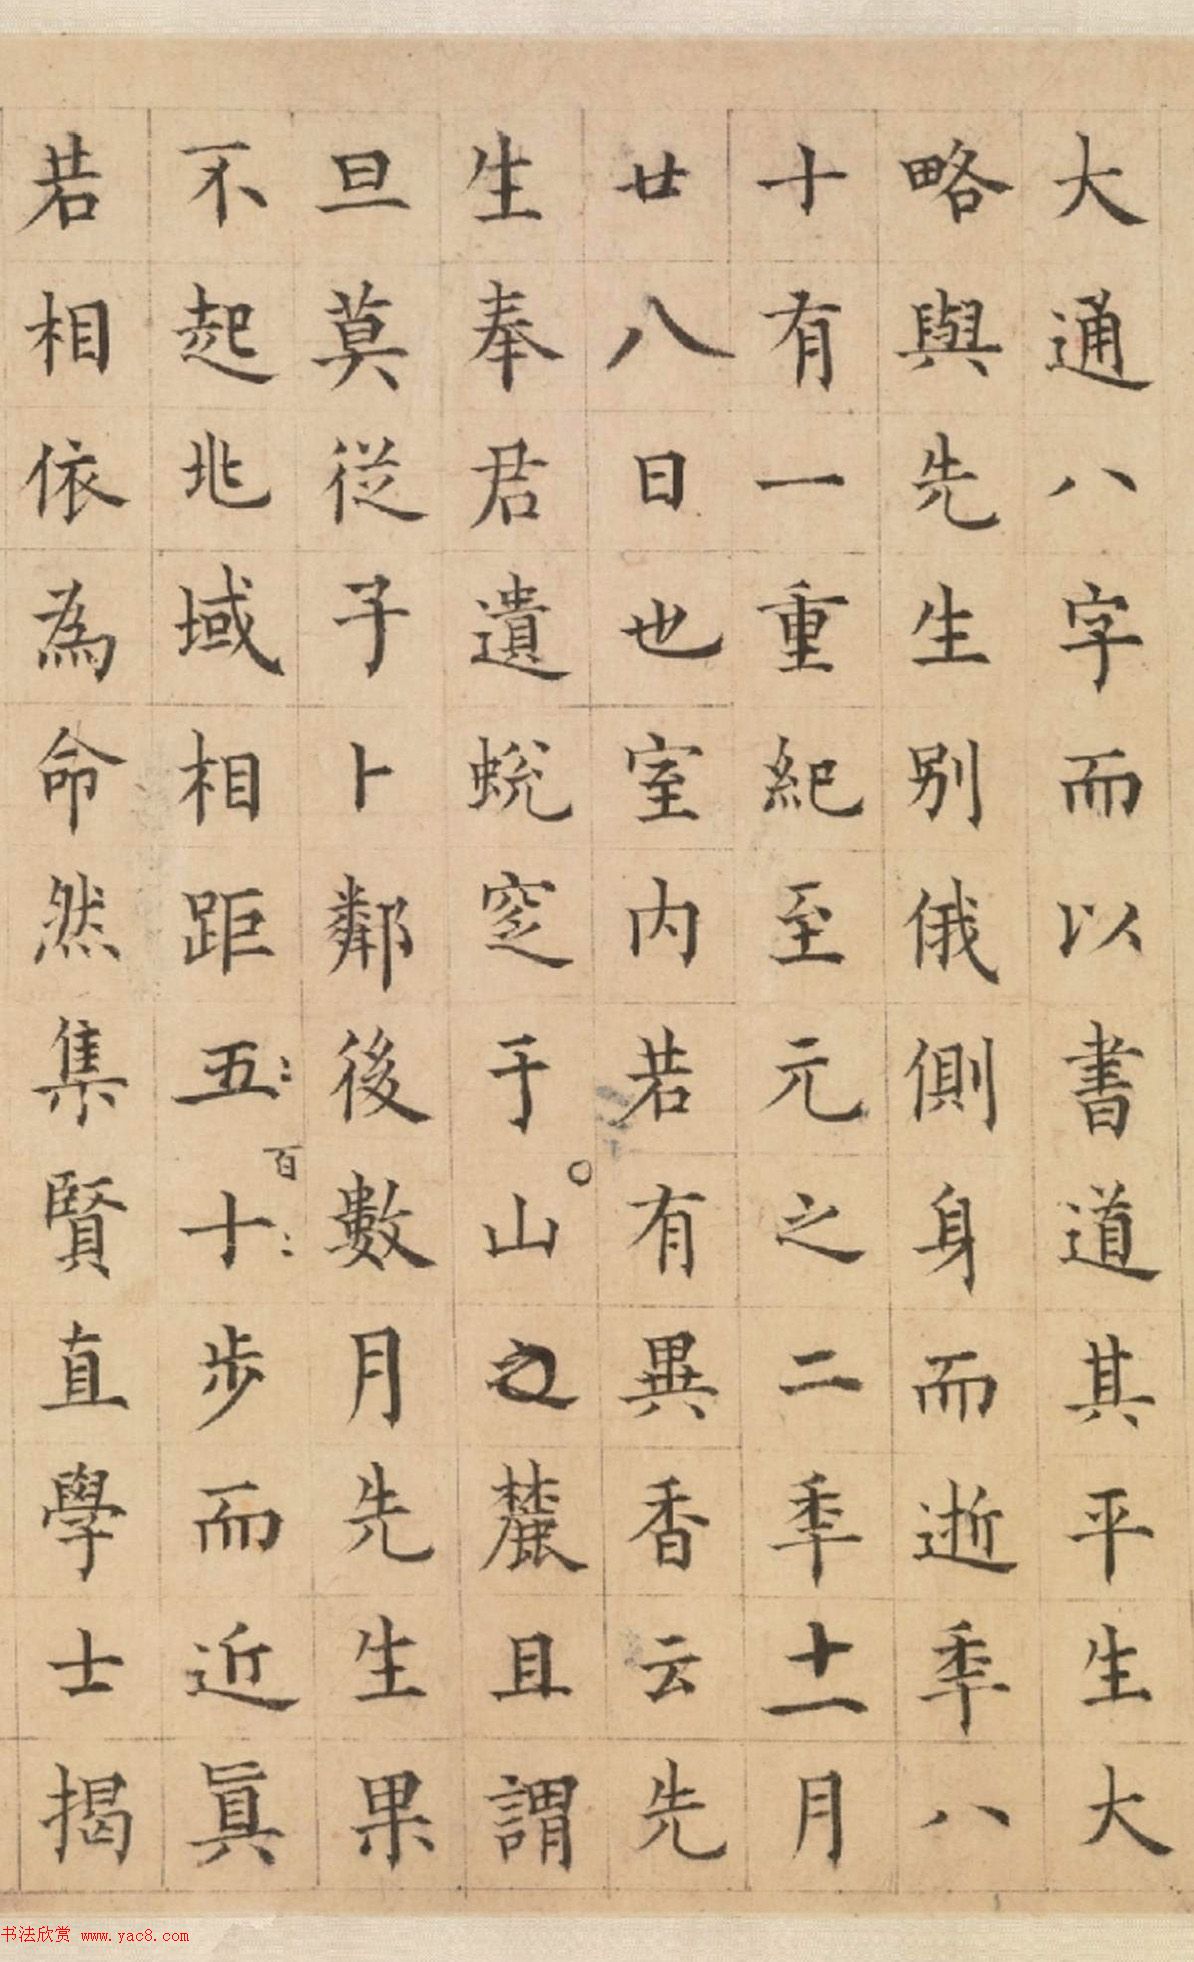 大通八字而以書道其平生大
略與先生别俄側身而逝秊八
十有一重紀至元之二秊十一月
廿八日也室内若有異香云先
生奉君遺蛻窆于山之麓且謂
旦莫從子卜鄰後數月先生果
不起兆域相距五十步而近眞
百
若相依為命然集賢直學士揭
书法欣赏 www.yac8.com